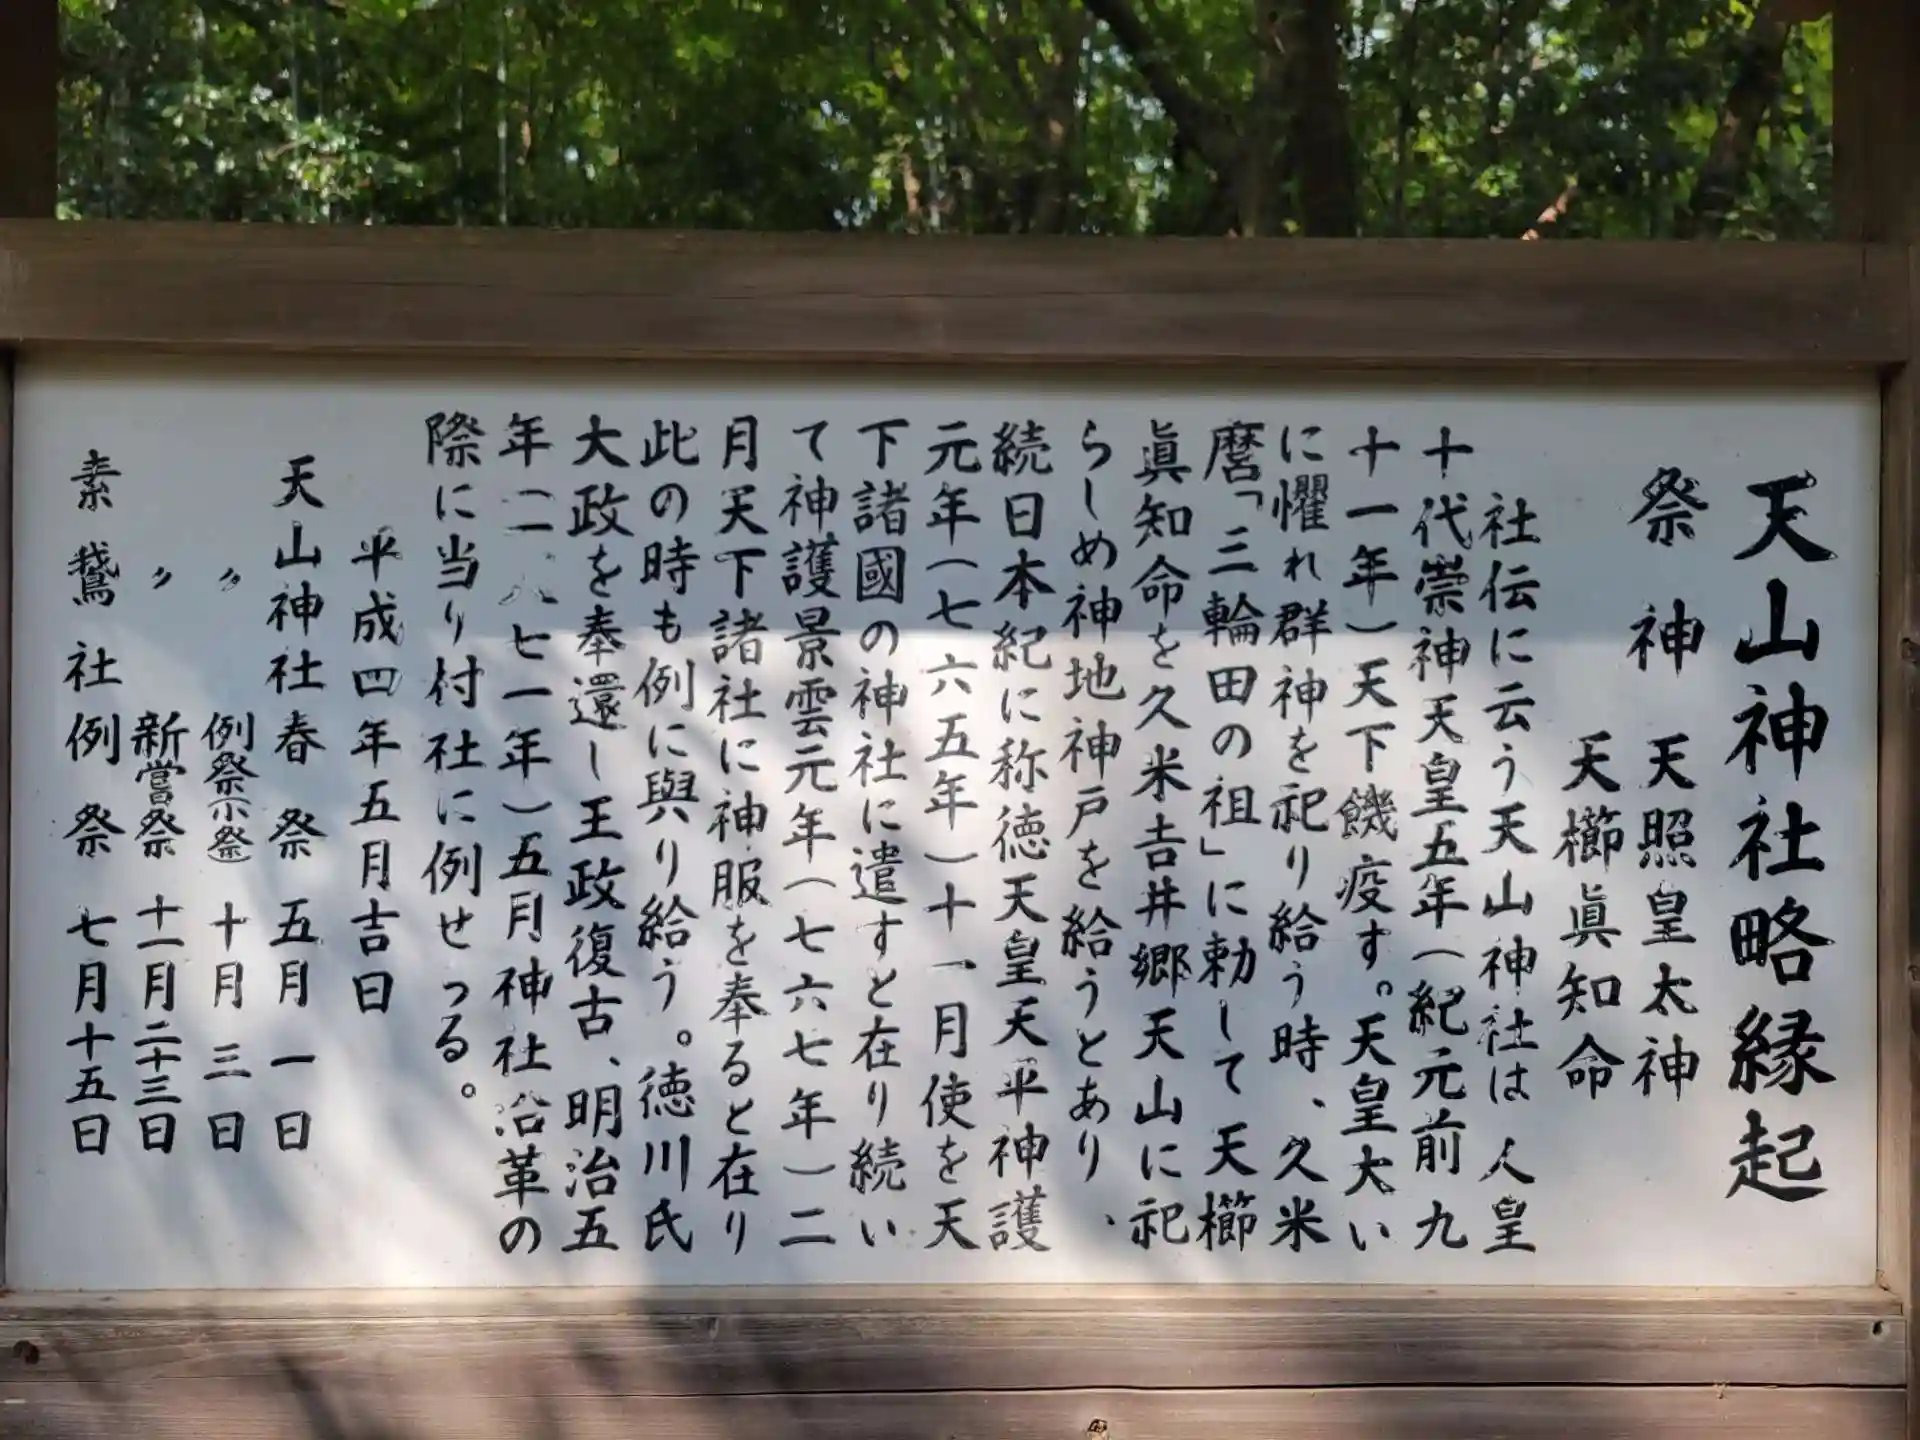 天山神社略縁起
祭神 天照皇太神
天櫛眞知命
社伝に云う天山神社は人皇
十代崇神天皇五年(紀元前九
十一年)天下饑疫す。天皇大い
に懼れ群神を祀り給う時、久米
麿「三輪田の祖」に勅して天櫛
眞知命を久米吉井郷天山に祀
らしめ神地神戸を給うとあり、
続日本紀に称徳天皇天平神護
元年(七六五年)十一月使を天
下諸國の神社に遣すと在り続い
て神護景雲元年(七六七年)二
月天下諸社に神服を奉ると在り
此の時も例に與り給う。徳川氏
大政を奉還し王政復古、明治五
年(一八七一年)五月神社沿革の
際に当り村社に例せつる。
平成四年五月吉日
天山神社春祭 五月一日
〃 例祭(示祭) 十月三日
〃 新嘗祭 十一月二十三日
素鵞社例祭 七月十五日